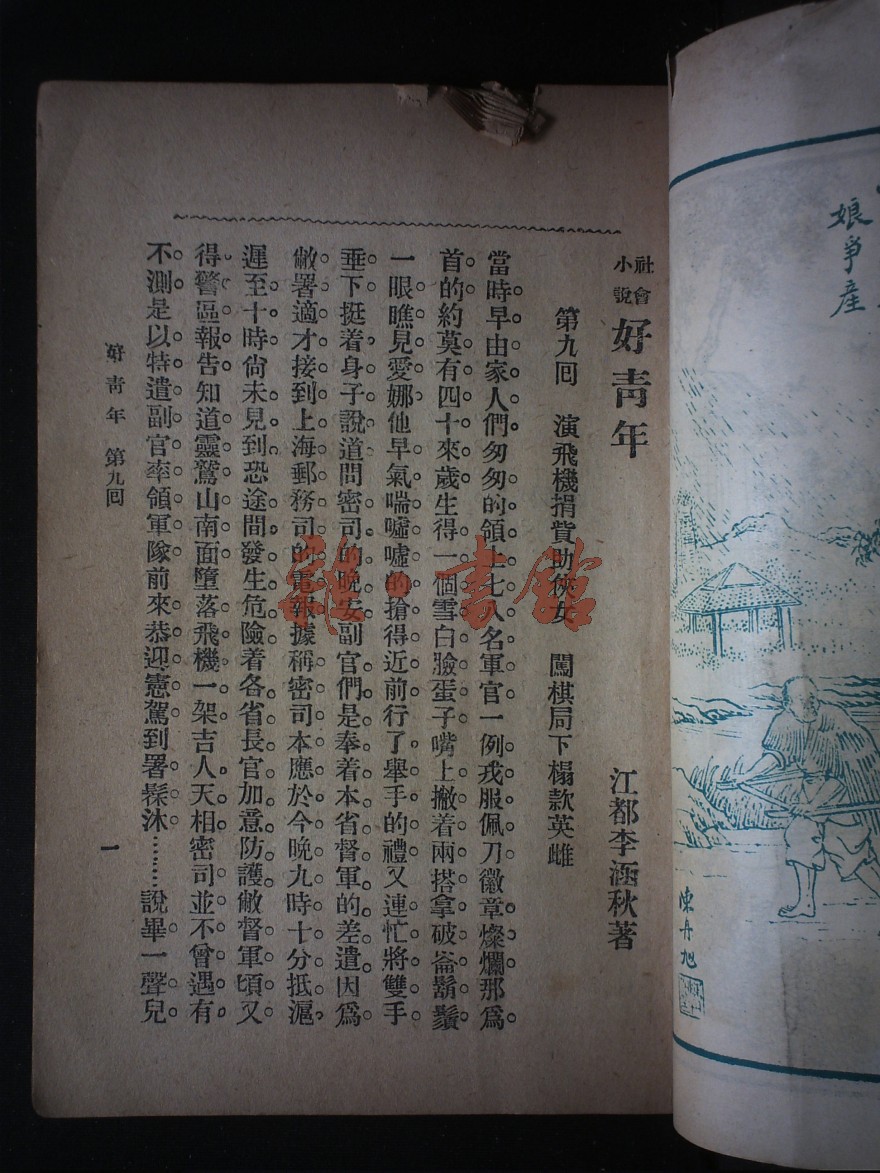 娘爭產
陳丹旭
社會小說 好靑年
江都李涵秋著
第九回 演飛機捐貲助俠女 闖棋局下榻款英雌
當時早由家人們匆匆的領上七八名軍官一例戎服佩刀徽章燦爛那爲
首的約莫有四十來歲生得一個雪白臉蛋子嘴上撇着兩搭拿破崙鬍鬚
一眼瞧見愛娜他早氣喘噓噓的搶得近前行了舉手的禮又連忙將雙手
垂下挺着身子說道問密司的晚安副官們是奉着本省督軍的差遣因爲
敝署適才接到上海郵務司的電報據稱密司本應於今晚九時十分抵滬
遲至十時尙未見到恐途間發生危險着各省長官加意防護敝督軍頃又
得警區報告知道靈鷲山南面墮落飛機一架吉人天相密司並不曾遇有
不測是以特遣副官率領軍隊前來恭迎憲駕到署髹沐……說畢一聲兒
好靑年 第九回
一
雜·書館